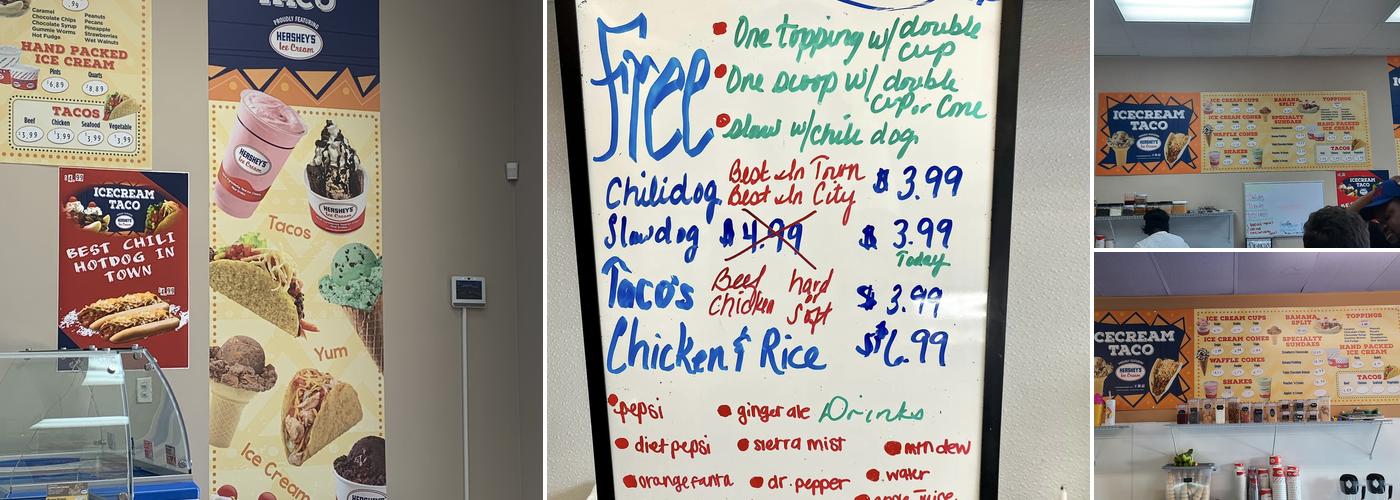 .99
Caramel
Chocolate Chips
Chocolate Syrup
Gummie Worms
Hot Fudge
Peanuts
Pecans
Pineapple
Strawberries
Wet Walnuts
HAND PACKED
ICE CREAM
Pints Quarts
$6.89 $8.89
TACOS
Beef Chicken Seafood Vegetable
$3.99 $3.99 $3.99 $3.99
$4.99
ICECREAM
TACO
BEST CHILI
HOTDOG IN
TOWN
$4.99
TACO
PROUDLY FEATURING
HERSHEY'S
Ice Cream
HERSHEY'S
Ice Cream
HERSHEY'S
Tacos
Yum
Ice Cream
HERSHEY'S
Free
One topping w/ double
cup
One scoop w/ double
cup or Cone
slaw w/chili dog
Chilidog Best In Town
Best In City $ 3.99
Slawdog $ 4.99 $ 3.99
Today
Taco's Beef hard
Chicken or Soft $ 3.99
Chicken & Rice $ 6.99
pepsi ginger ale Drinks
diet pepsi sierra mist mtn dew
orange fanta dr. pepper water
ICECREAM
TACO
HERSHEY'S
ICE CREAM CUPS
ICE CREAM CONES
WAFFLE CONES
SHAKES
BANANA
SPLIT
SPECIALTY
SUNDAES
TOPPINGS
HAND PACKED
ICE CREAM
TACOS
ICECREAM
TACO
ICECREAM
TACO
HERSHEY'S
ICE CREAM CUPS
ICE CREAM CONES
WAFFLE CONES
SHAKES
BANANA
SPLIT
SPECIALTY
SUNDAES
TOPPINGS
HAND PACKED
ICE CREAM
TACOS